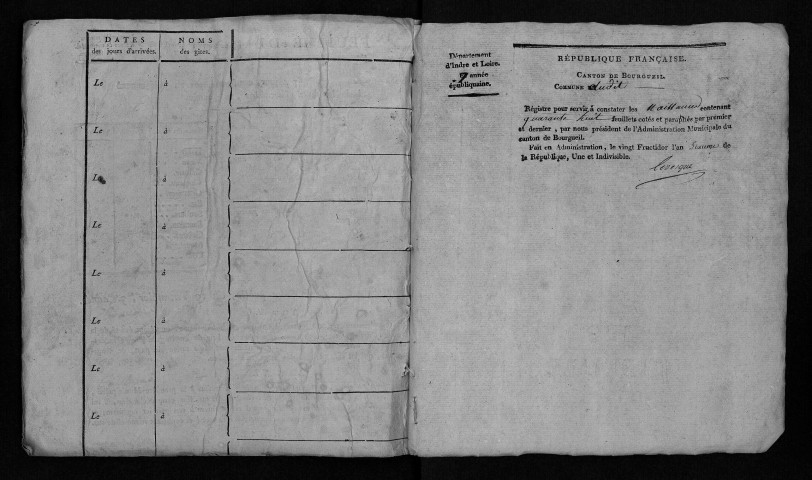 DATES
des jours d'arrivées.
NOMS
des gites.
Le à
Le à
Le à
Le à
Le à
Le à
Le à
Le à
Département
d'Indre et Loire.
7 année
républiquaine.
RÉPUBLIQUE FRANÇAISE.
CANTON DE BOURGUEIL.
COMMUNE dudit
Régistre pour servir à constater les Naissances contenant
quarante huit feuillets cotés et paraphés par premier
et dernier, par nous président de l'Administration Municipale du
canton de Bourgueil.
Fait en Administration, le vingt Fructidor l'an Sixième de
la République, Une et Indivisible.